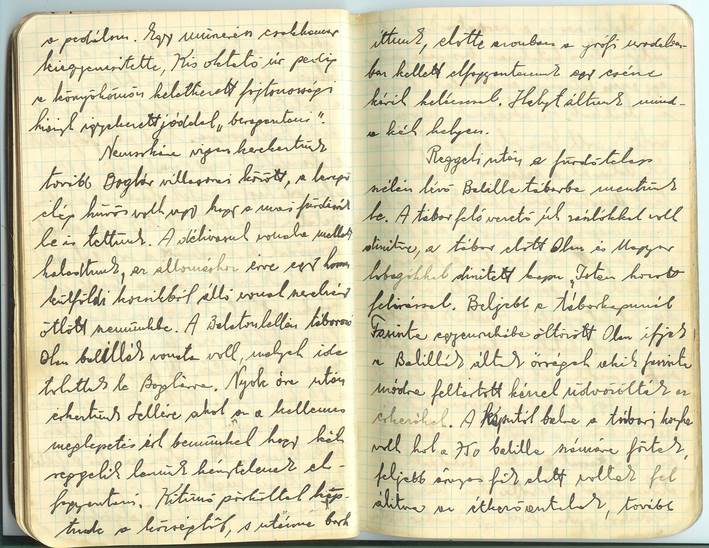 a pedálom. Egy műszerész csakhamar
kiegyenesítette, Kis oktató úr pedig
a könyökömön keletkezett
igyekezett jóddal „
Nemsokára vígan kerekeztünk
tovább Boglár villasorai között, a levegő
elég hűvös volt úgy hogy a mai fürdésről
le is tettünk. A délivasút vonala mellett
haladtunk, az állomáshoz érve egy hosszú
külföldi kocsikból álló vonat
ötlött szemünkbe. A Balatonlellén táborozó
Olasz balillák vonata volt, melyek ide
tolattak le Boglárra. Nyolc óra után
értünk Lellére ahol az a kellemes
meglepetés ért bennünket hogy két
reggelit leszünk kénytelenek el-
fogyasztani. Kitűnő pörkölttel
a községtől, s utánna
ittunk, előtte azonban a grófi uradalom-
ban kellett elfogyasztanunk egy csésze
kávét kaláccsal. Helyt álltunk mind-
a két helyen.
Reggeli után a fürdőtelep
szélén lévő Balilla táborba mentünk
be. A tábor felé vezető út zászlókkal volt
díszítve, a tábor előtt Olasz és Magyar
lobogókkal díszített kapu „Isten hozott"
felírással. Beljebb a táborkapunál
Fasiszta egyenruhába öltözött Olasz ifjak
a Balillák álltak őrséget akik fasiszta
módra feltartott kézzel üdvözölték az
érkezőket. A kaputól balra a tábori konyha
volt hol a 750 balilla számára főztek,
feljebb árnyas fák alatt voltak fel
állítva az étkezőasztalok, tovább